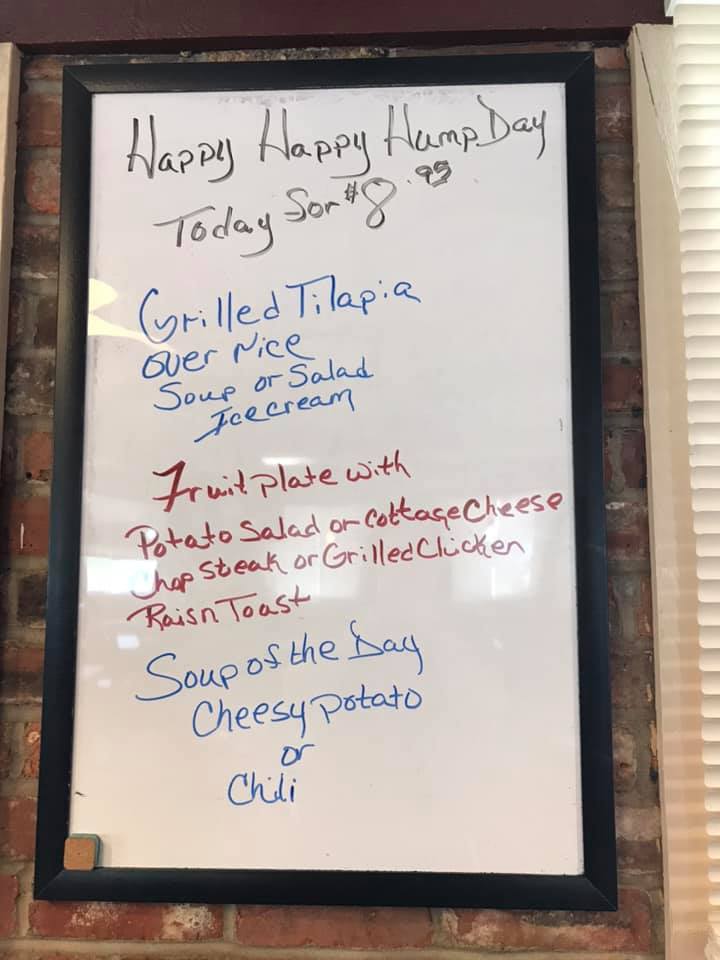 Happy Happy Hump Day
Today for $8.95
Grilled Tilapia
over Rice
Soup or Salad
Ice cream
Fruit plate with
Potato Salad or Cottage Cheese
Chop Steak or Grilled Chicken
Raisn Toast
Soup of the Day
Cheesy potato
or
Chili